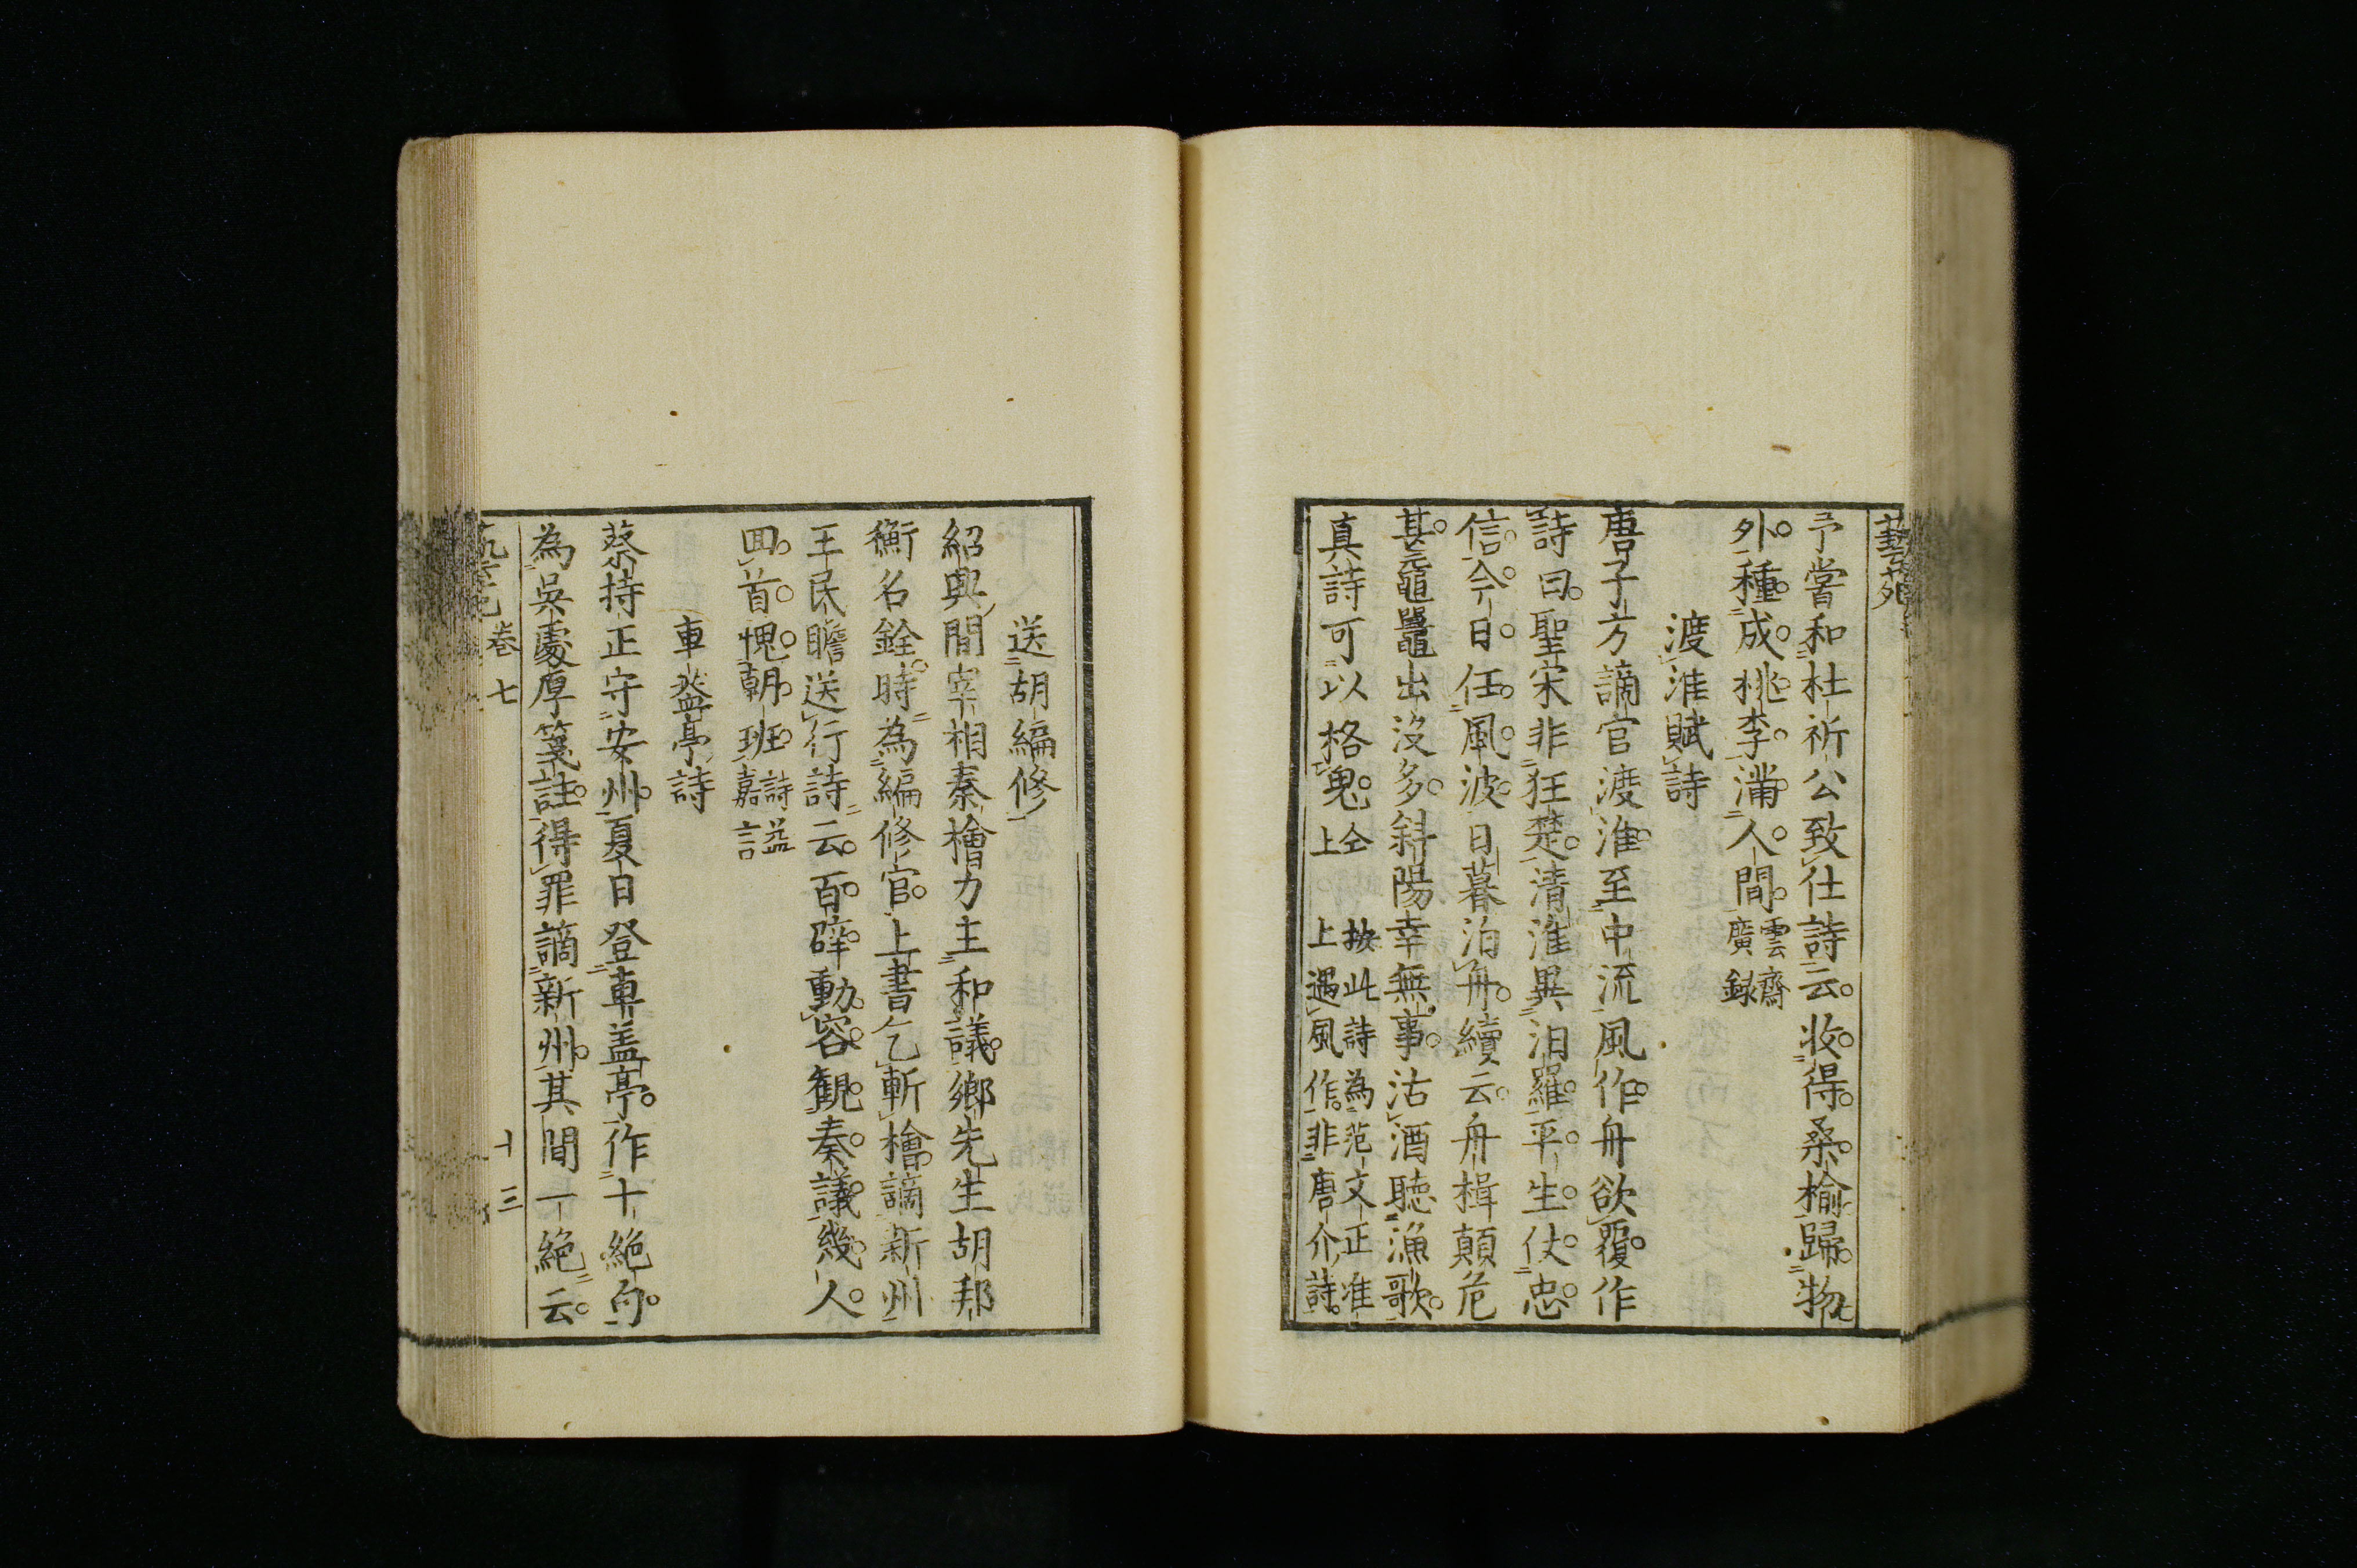 藝苑
予嘗和杜祈公致仕詩云。收得。桑。榆。歸。物
外。種。成。桃。李。滿。人。間。雲齋廣録
渡淮賦詩
唐子方謫官渡淮。至中流風作。舟欲覆。作
詩曰。聖宋非狂楚。清淮異汨羅。平。生。仗。忠。
信。今。日。任。風。波。日暮泊舟。續云。舟楫顛危
甚。黿鼉出没多。斜陽幸無事。沽酒聴漁歌。
真詩可以格鬼。仝上。按此詩為范文正准上遇風作。非唐介詩。
送胡編修
紹興間宰相秦檜力主和議。鄉先生胡邦
衡名銓。時為編修官。上書乞斬檜。謫新州
王民瞻送行詩云。百。辟。動。容。観。奏。議。幾。人。
囬。首。愧。朝。班。詩話嘉謚
車盖亭詩
蔡持正守安州。夏日登車盖亭。作十絶句。
為吳䖏厚箋註。得罪謫新州。其間一絶云。
卷七
十三